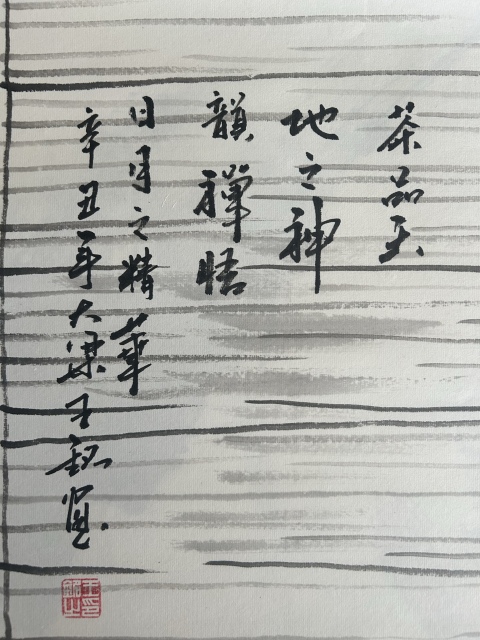 茶品天
地之神
韻禪悟
日月之精華
辛丑年大梁王銘寬